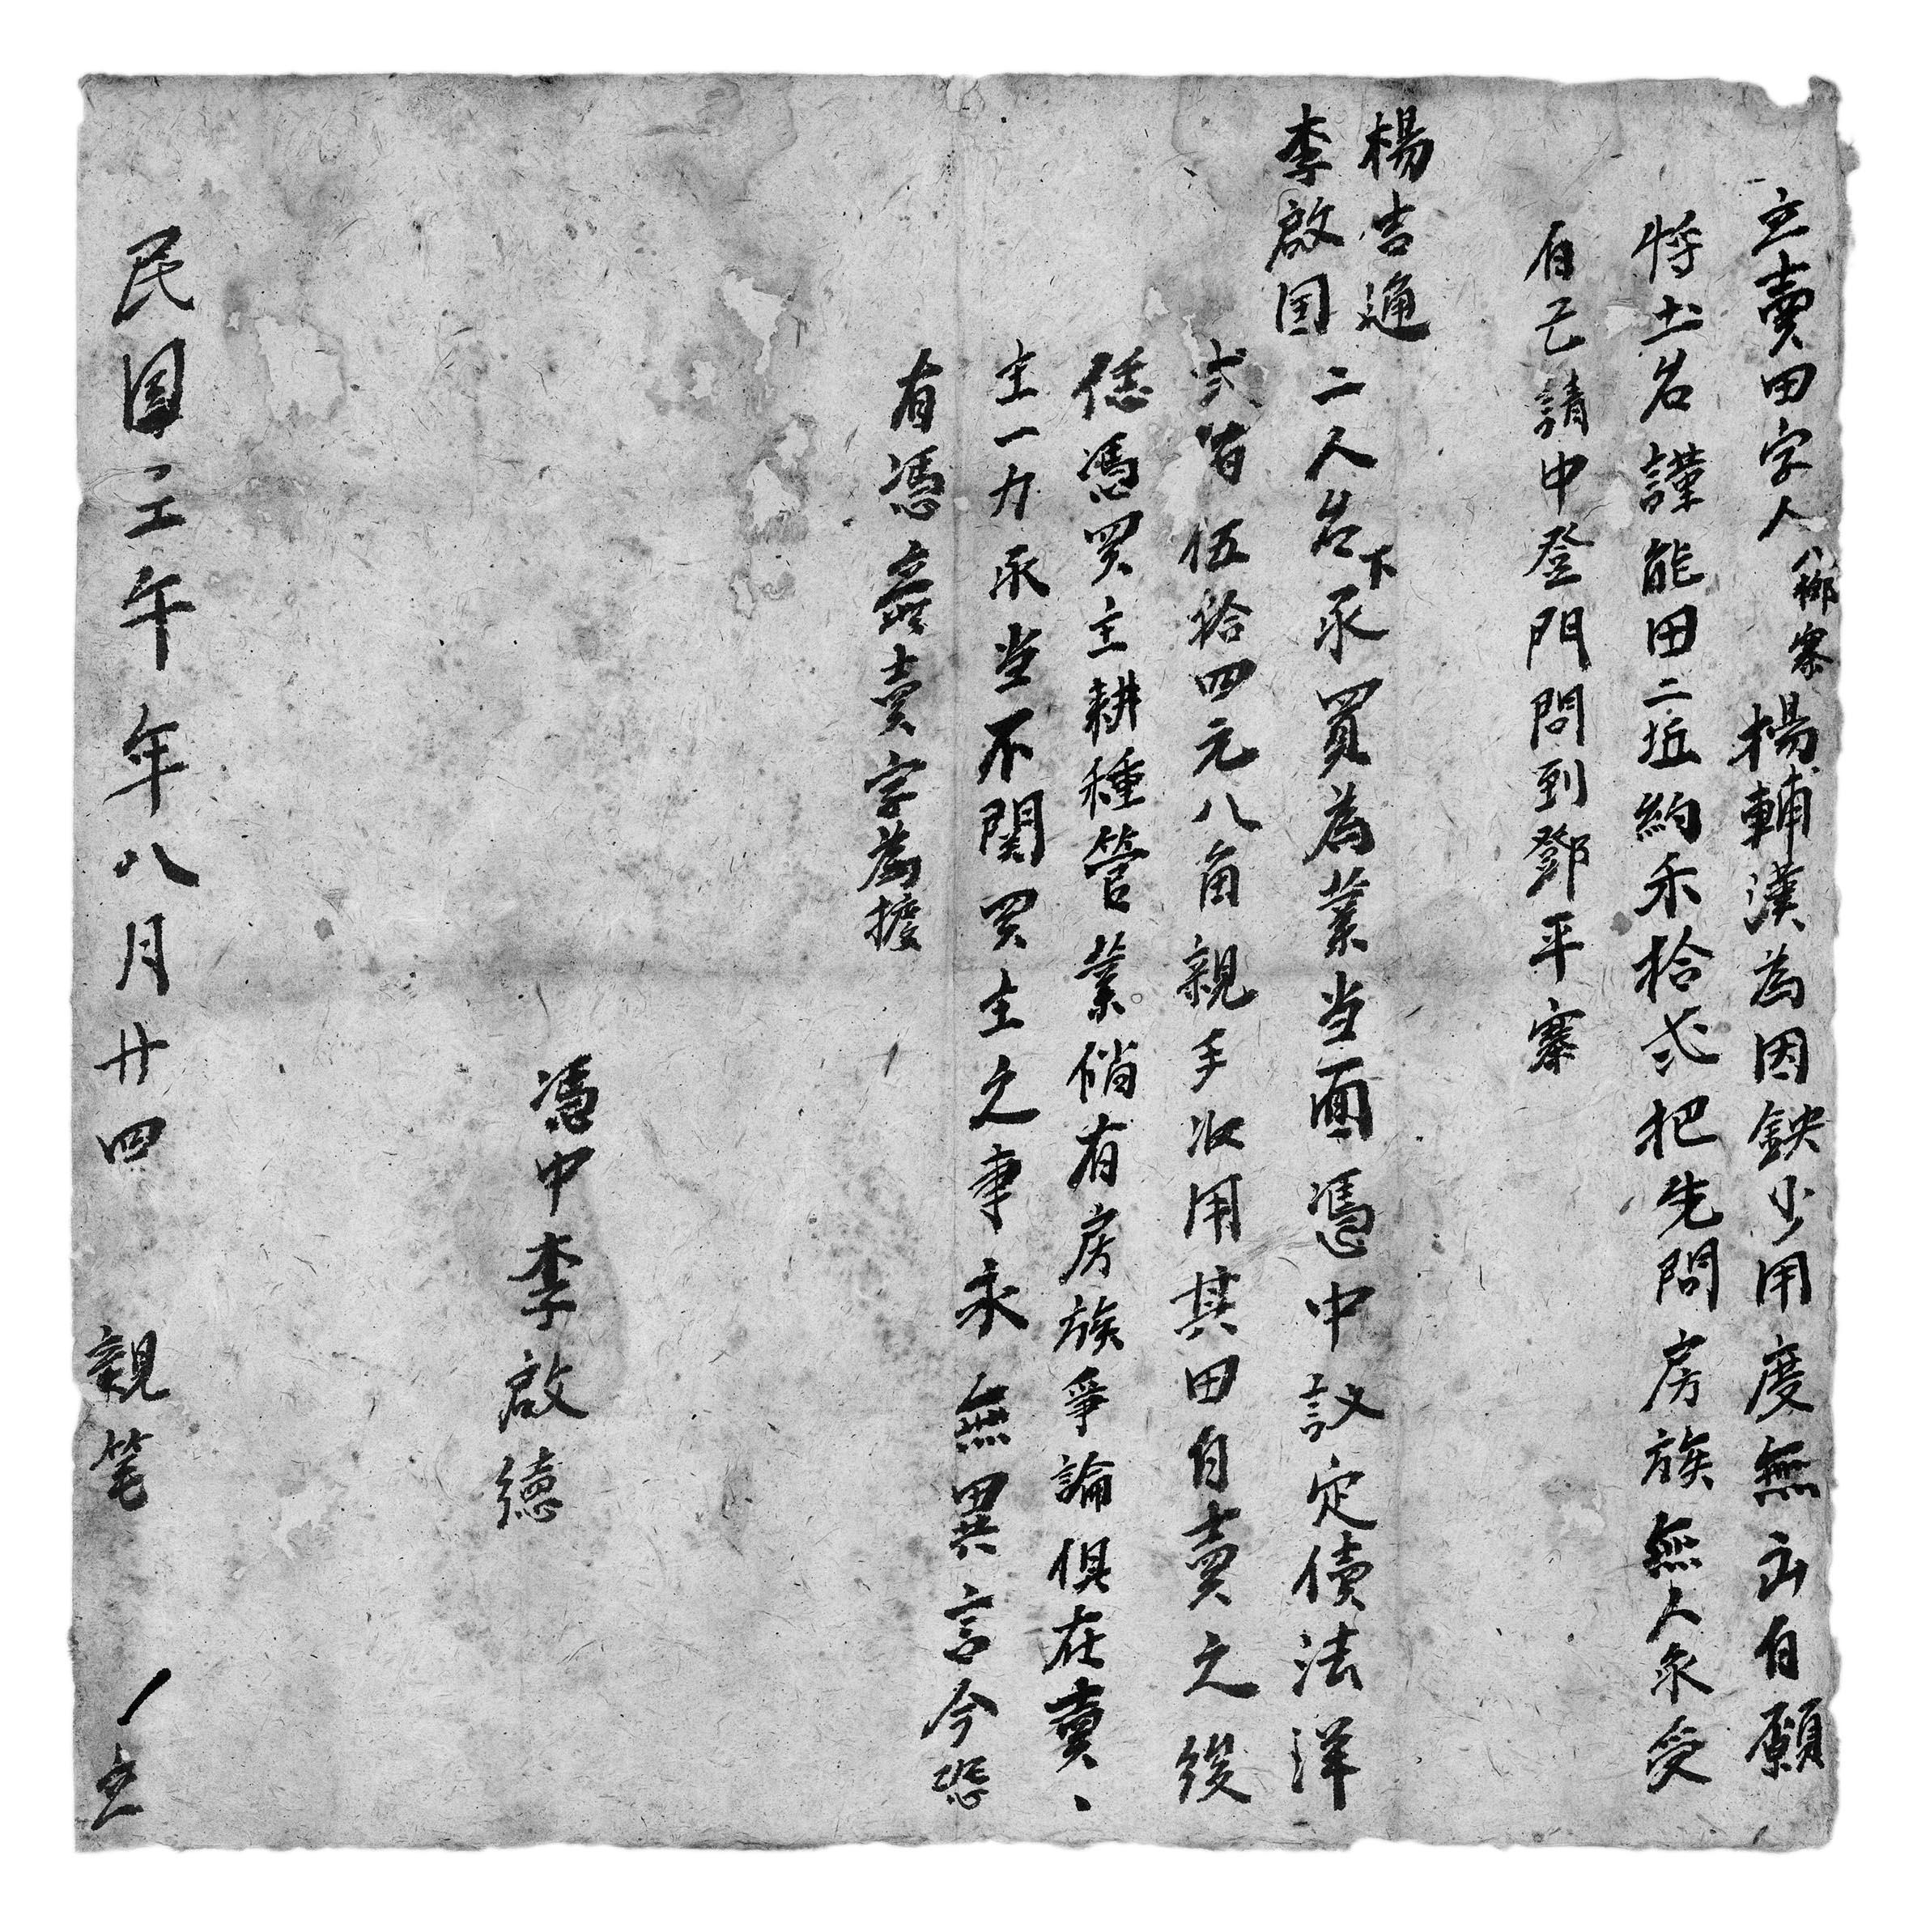 立賣田字人八梛寨楊輔漢為因鈌少用度無出自願
將土名謹能田二坵約禾拾弍把先問房族無人承受
自己請中登門問到鄧平寨
楊吉通
李啟国
二人名下承買為業当面憑中議定價法洋
弍百伍拾四元八角親手收用其田自賣之後
恁憑買主耕種管業倘有房族爭論俱在賣、
主一力承当不関買主之事永無異言今恐
有憑立無賣字為據
憑中李啟德
民国壬午年八月廿四 親笔 立